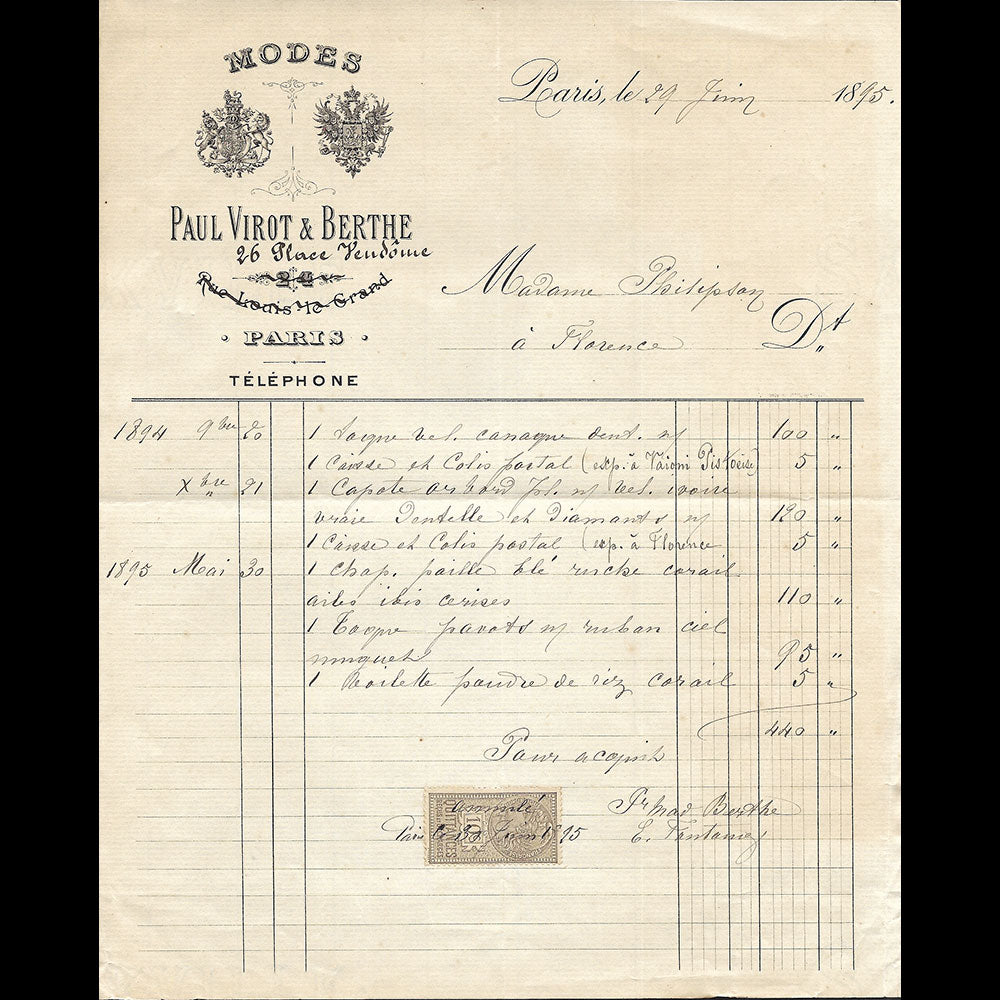 MODES
Paris, le 29 Juin 1895.
PAUL VIROT & BERTHE
26 Place Vendôme
24
Rue Louis le Grand
Madame Philipson
• PARIS •
à Florence Dt
TÉLÉPHONE
1894 9bre 20 1 Toque vel. canaque dent. n/ 100 "
1 Caisse et Colis postal (exp. à Vaioni Pistoiese) 5 "
Xbre 21 1 Capote or bord pl. n/ vel. ivoire
vraie Dentelle et Diamants n/ 120 "
1 Caisse et Colis postal (exp. à Florence 5 "
1895 Mai 30 1 Chap. paille blé ruche corail
ailes ibis cerises 110 "
1 Toque pavots n/ ruban ciel
muguet 95 "
1 Voilette poudre de riz corail 5 "
440 "
Pour acquit
annulé
Pr Mad Berthe
Paris le 30 Juin 1895
QUITTANCES
10